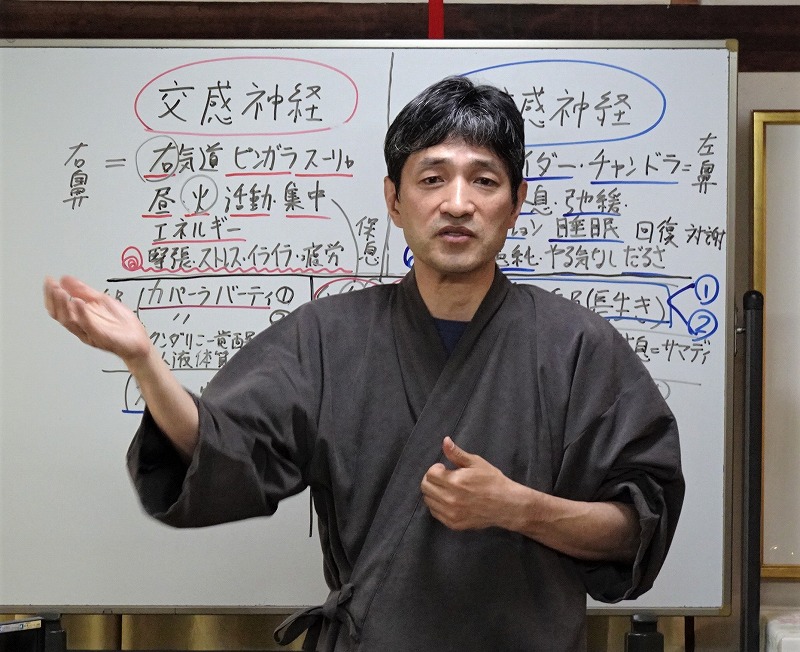 交感神経
感神経
右鼻 = 右気道 ピンガラ スーリャ
イダー・チャンドラ = 左鼻
昼 火 活動・集中
息・弛緩・
エネルギー
ション 睡眠 回復 代謝
緊張・ストレス・イライラ・疲労
保息
純・やる気なし だるさ
カパーラバーティ①
〃
(長生き)
①
②
クンダリニー覚醒
液体
息=サマディ